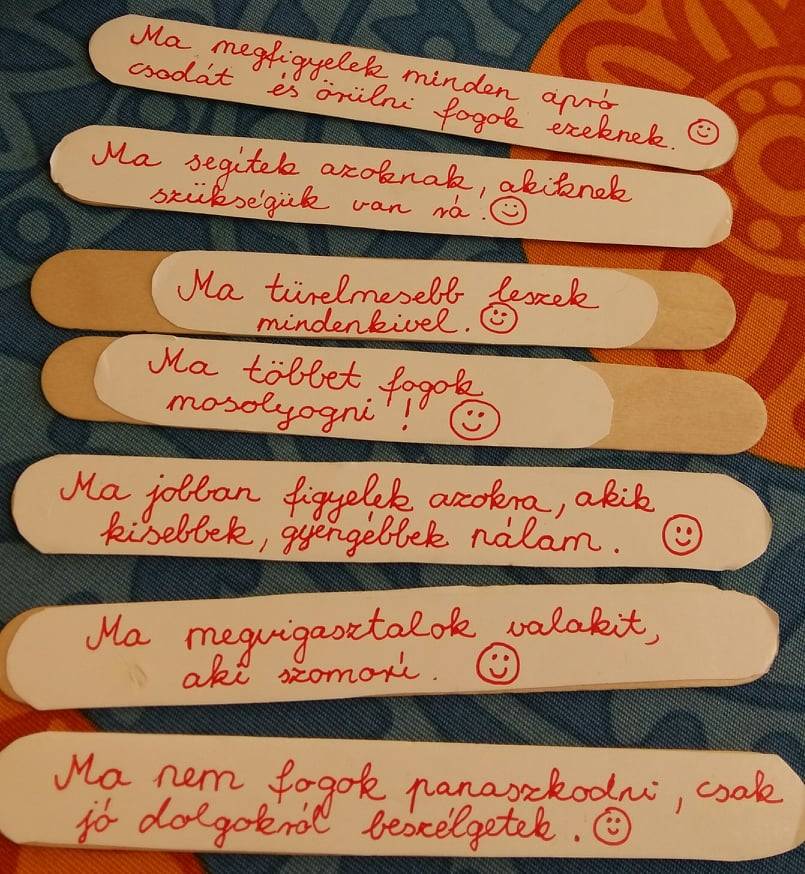 Ma megfigyelek minden apró
csodát és örülni fogok ezeknek.
Ma segítek azoknak, akiknek
szükségük van rá.
Ma türelmesebb leszek
mindenkivel.
Ma többet fogok
mosolyogni!
Ma jobban figyelek azokra, akik
kisebbek, gyengébbek nálam.
Ma megvigasztalok valakit,
aki szomorú.
Ma nem fogok panaszkodni, csak
jó dolgokról beszélgetek.